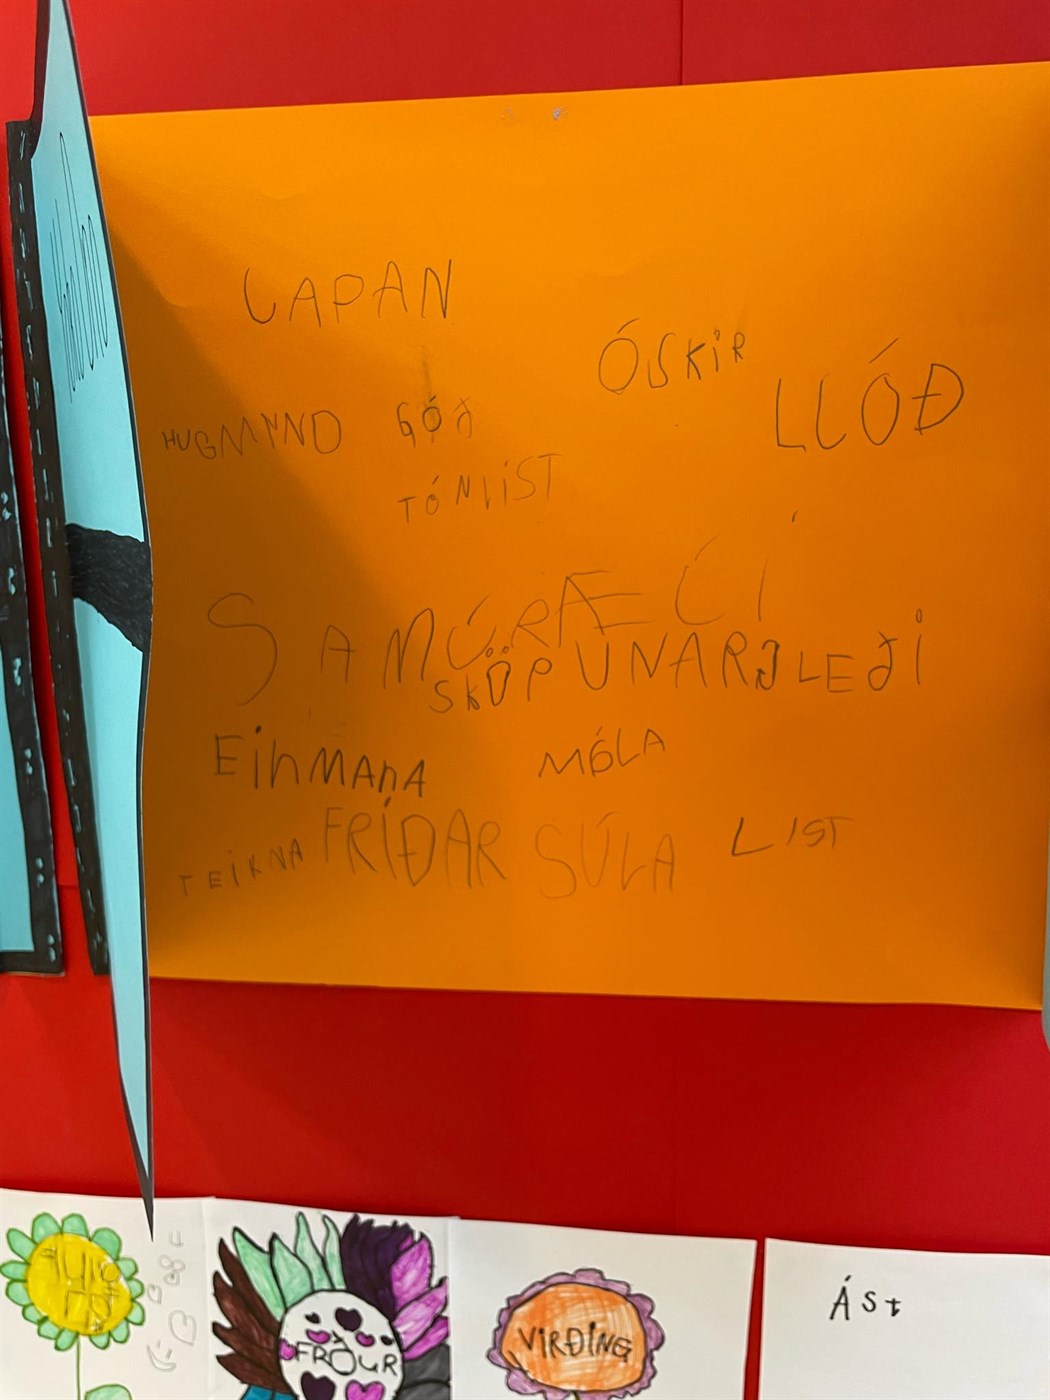 JAPAN
ÓSKIR
LLÓÐ
HUGMYND GÓÐ
TÓNLIST
SAMÚRÆ Í
SKÖPUNARGLEÐI
EINMANA MÁLA
TEIKNA FRÍÐAR SÚLA LIST
FRÐUR
VIRÐING
Ást